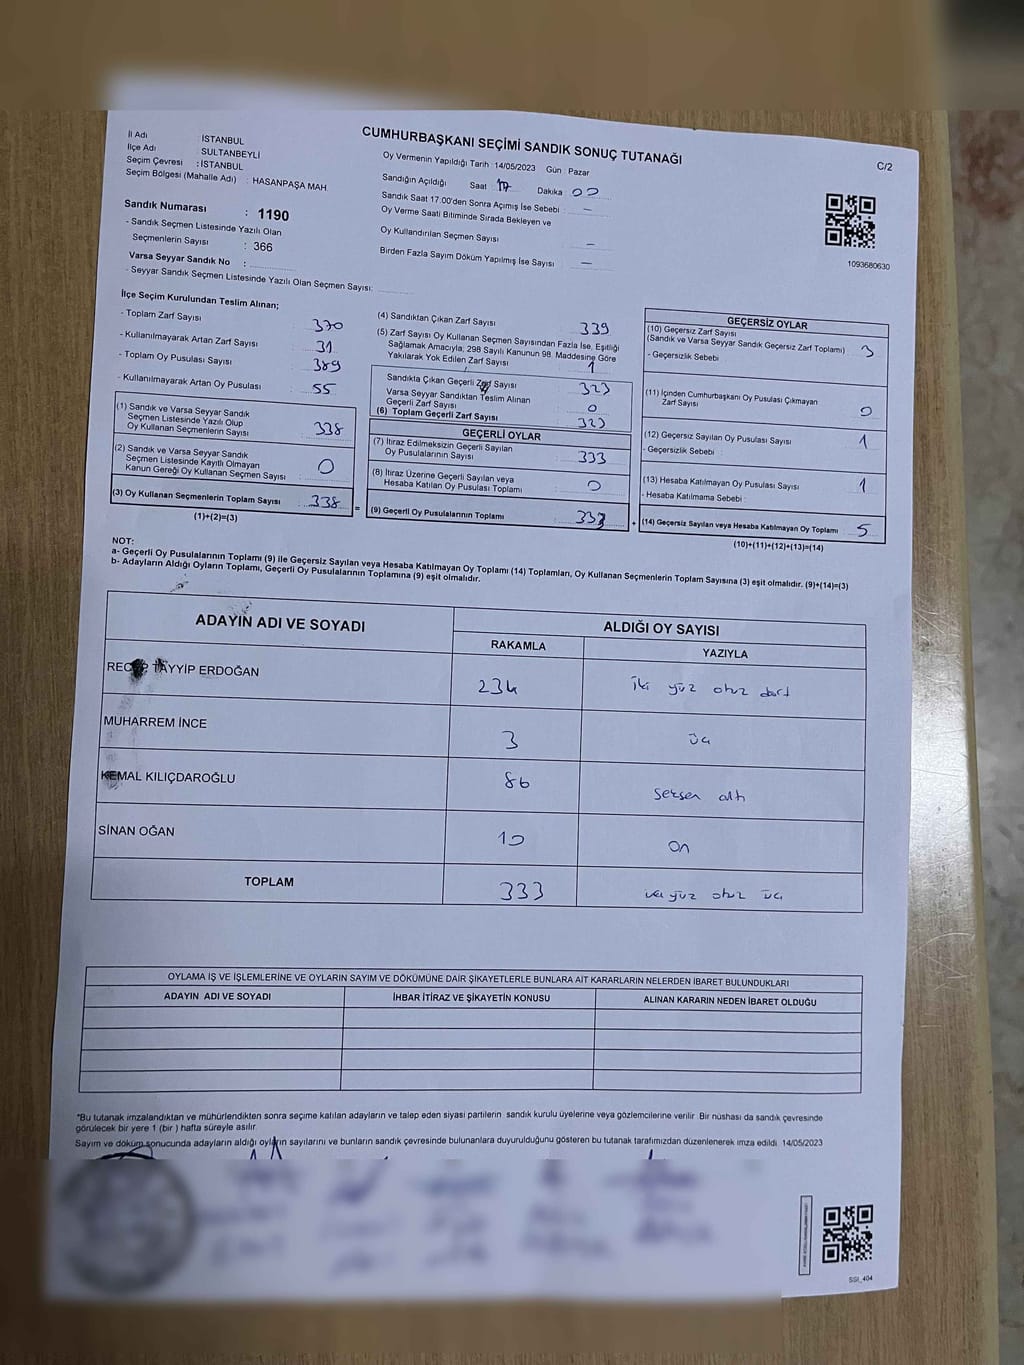 CUMHURBAŞKANI SEÇİMİ SANDIK SONUÇ TUTANAĞI
C/2
İl Adı : İSTANBUL
İlçe Adı SULTANBEYLİ
Seçim Çevresi : İSTANBUL
Seçim Bölgesi (Mahalle Adı) : HASANPAŞA MAH.
Sandık Numarası : 1190
- Sandık Seçmen Listesinde Yazılı Olan
Seçmenlerin Sayısı : 366
Varsa Seyyar Sandık No :
- Seyyar Sandık Seçmen Listesinde Yazılı Olan Seçmen Sayısı:
Oy Vermenin Yapıldığı Tarih : 14/05/2023 Gün : Pazar
Sandığın Açıldığı Saat 17 Dakika 00
Sandık Saat 17.00'den Sonra Açımış İse Sebebi –
Oy Verme Saati Bitiminde Sırada Bekleyen ve
Oy Kullandırılan Seçmen Sayısı –
Birden Fazla Sayım Döküm Yapılmış İse Sayısı –
1093680630
İlçe Seçim Kurulundan Teslim Alınan;
- Toplam Zarf Sayısı 370
- Kullanılmayarak Artan Zarf Sayısı 31
- Toplam Oy Pusulası Sayısı 389
- Kullanılmayarak Artan Oy Pusulası 55
(1) Sandık ve Varsa Seyyar Sandık
Seçmen Listesinde Yazılı Olup
Oy Kullanan Seçmenlerin Sayısı 338
(2) Sandık ve Varsa Seyyar Sandık
Seçmen Listesinde Kayıtlı Olmayan
Kanun Gereği Oy Kullanan Seçmen Sayısı : 0
(3) Oy Kullanan Seçmenlerin Toplam Sayısı 338
(1)+(2)=(3)
=
(4) Sandıktan Çıkan Zarf Sayısı 339
(5) Zarf Sayısı Oy Kullanan Seçmen Sayısından Fazla İse, Eşitliği
Sağlamak Amacıyla, 298 Sayılı Kanunun 98. Maddesine Göre
Yakılarak Yok Edilen Zarf Sayısı 1
Sandıkta Çıkan Geçerli Zarf Sayısı 323
Varsa Seyyar Sandıktan Teslim Alınan
Geçerli Zarf Sayısı 0
(6) Toplam Geçerli Zarf Sayısı 323
GEÇERLİ OYLAR
(7) İtiraz Edilmeksizin Geçerli Sayılan
Oy Pusulalarının Sayısı 333
(8) İtiraz Üzerine Geçerli Sayılan veya
Hesaba Katılan Oy Pusulası Toplamı 0
(9) Geçerli Oy Pusulalarının Toplamı 333
+
GEÇERSİZ OYLAR
(10) Geçersiz Zarf Sayısı
(Sandık ve Varsa Seyyar Sandık Geçersiz Zarf Toplamı) 3
- Geçersizlik Sebebi :
(11) İçinden Cumhurbaşkanı Oy Pusulası Çıkmayan
Zarf Sayısı 0
(12) Geçersiz Sayılan Oy Pusulası Sayısı 1
- Geçersizlik Sebebi :
(13) Hesaba Katılmayan Oy Pusulası Sayısı 1
- Hesaba Katılmama Sebebi :
(14) Geçersiz Sayılan veya Hesaba Katılmayan Oy Toplamı 5
(10)+(11)+(12)+(13)=(14)
NOT:
a- Geçerli Oy Pusulalarının Toplamı (9) ile Geçersiz Sayılan veya Hesaba Katılmayan Oy Toplamı (14) Toplamları, Oy Kullanan Seçmenlerin Toplam Sayısına (3) eşit olmalıdır. (9)+(14)=(3)
b- Adayların Aldığı Oyların Toplamı, Geçerli Oy Pusulalarının Toplamına (9) eşit olmalıdır.
ADAYIN ADI VE SOYADI
ALDIĞI OY SAYISI
RAKAMLA YAZIYLA
RECEP TAYYİP ERDOĞAN 234 iki yüz otuz dört
MUHARREM İNCE 3 üç
KEMAL KILIÇDAROĞLU 86 seksen altı
SİNAN OĞAN 10 on
TOPLAM 333 üç yüz otuz üç
OYLAMA İŞ VE İŞLEMLERİNE VE OYLARIN SAYIM VE DÖKÜMÜNE DAİR ŞİKAYETLERLE BUNLARA AİT KARARLARIN NELERDEN İBARET BULUNDUKLARI
ADAYIN ADI VE SOYADI İHBAR İTİRAZ VE ŞİKAYETİN KONUSU ALINAN KARARIN NEDEN İBARET OLDUĞU
*Bu tutanak imzalandıktan ve mühürlendikten sonra seçime katılan adayların ve talep eden siyasi partilerin sandık kurulu üyelerine veya gözlemcilerine verilir. Bir nüshası da sandık çevresinde
görülecek bir yere 1 (bir ) hafta süreyle asılır.
Sayım ve döküm sonucunda adayların aldığı oyların sayılarını ve bunların sandık çevresinde bulunanlara duyurulduğunu gösteren bu tutanak tarafımızdan düzenlenerek imza edildi. 14/05/2023
SSI_404